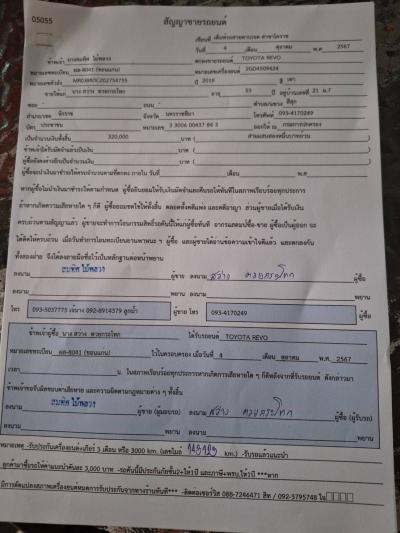 05055
สัญญาขายรถยนต์
เขียนที่ เต็นท์รถสวยตาเบส สาขาโคราช
วันที่ 4 เดือน ตุลาคม พ.ศ 2567
ข้าพเจ้า นายสมทิศ ไม้พลวง ตกลงขายรถยนต์ TOYOTA REVO
หมายเลขทะเบียน ผล-8041 (ขอนแก่น) หมายเลขเครื่องยนต์ 2GD4509424
หมายเลขตัวถัง ปี 2018 สี เทา
ขายให้แก่ นาง สว่าง ดวยกระโทก อายุ 53 ปี อยู่บ้านเลขที่ 21 ม.7
ซอย - ถนน - ตำบล/แขวง สีสุก
อำเภอ/เขต จักราช จังหวัด นครราชสีมา โทรศัพท์ 093-4170249
บัตร ประชาชน หมายเลข 3 3006 00437 84 3 ออกให้ ณ กรมการปกครอง
เป็นจำนวนเงินทั้งสิ้น 320,000 บาท ( สามแสนสองหมื่นบาทถ้วน )
ข้าพเจ้าได้รับมัดจำแล้วเป็นจำนวนเงิน - บาท ( )
ผู้ซื้อยังคงค้างอีกเป็นจำนวนเงิน - บาท ( )
ผู้ซื้อจะนำเงินมาชำระให้ครบจำนวนตามที่ตกลง ภายใน วันที่ เดือน พ.ศ
หากผู้ซื้อไม่นำเงินมาชำระให้ตามกำหนด ผู้ซื้อยินยอมให้ริบเงินมัดจำและคืนรถให้ทันทีในสภาพเรียบร้อยทุกประการ
ถ้าหากเกิดความเสียหายใด ๆ ก็ดี ผู้ซื้อยอมชดใช้ให้ทั้งสิ้น ตลอดทั้งคดีแพ่ง และคดีอาญา ส่วนผู้ขายเมื่อได้รับเงิน
ครบถ้วนตามสัญญาแล้ว ผู้ขายจะทำการโอนกรรมสิทธิ์รถคันนี้ให้แก่ผู้ซื้อทันที
ทั้งสองฝ่าย จึงได้ลงลายมือชื่อไว้เป็นหลักฐานต่อหน้าพยาน
ลงนาม สมทิศ ไม้พลวง ผู้ขาย ลงนาม สว่าง ดวยกระโทก ผู้ซื้อ
ลงนาม พยาน ลงนาม พยาน
โทร 093-5037773 092-8914379 ลูกน้ำ ผู้ขาย โทร 093-4170249 ผู้ซื้อ
ข้าพเจ้าผู้ซื้อ นาง สว่าง ดวยกระโทก ได้รับรถยนต์ TOYOTA REVO
หมายเลขทะเบียน ผล-8041 (ขอนแก่น) ไว้ในครอบครอง เมื่อวันที่ 4 เดือน ตุลาคม พ.ศ 2567
เวลา น. ในสภาพเรียบร้อยทุกประการหากเกิดการเสียหายใด ๆ ก็ดีหลังจากที่รับรถยนต์ ดังกล่าวมา
ข้าพเจ้าขอรับผิดชอบค่าเสียหาย และความผิดตามกฎหมายต่าง ๆ ทั้งสิ้น
ลงนาม สมทิศ ไม้พลวง ผู้ขาย (ผู้มอบรถ) ลงนาม สว่าง ดวยกระโทก ผู้ซื้อ (ผู้รับรถ)
ลงนาม พยาน ลงนาม พยาน
หมายเหตุ -รับประกันเครื่องยนต์เกียร์ 3 เดือน หรือ 3000 km. (เลขไมล์ km.) -รับรถแล้วแนะนำ
ลูกค้ามาซื้อรถให้ค่าแนะนำคันละ 3,000 บาท -รถคันนี้มีประกันภัยชั้น2+ให้1ปี และภาษี+พรบ.ให้1ปี
มีการดัดแปลงสภาพเครื่องยนต์หมดการรับประกันจากทางร้านทันที*** -ติดต่อเซอร์วิส 088-7246471 สิท / 092-3795748